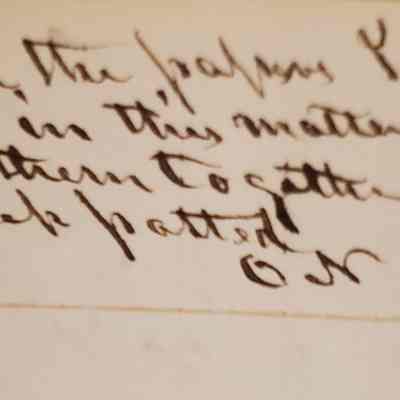 the papers
in this matter
them together
patted
O N